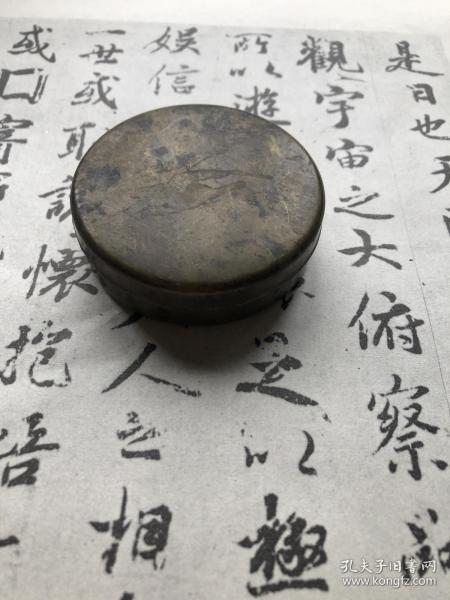 是日也天
觀宇宙之大俯察
所以遊足以極
娛信人之相
一世或取諸懷抱悟
或因寄
孔夫子旧书网
www.kongfz.com